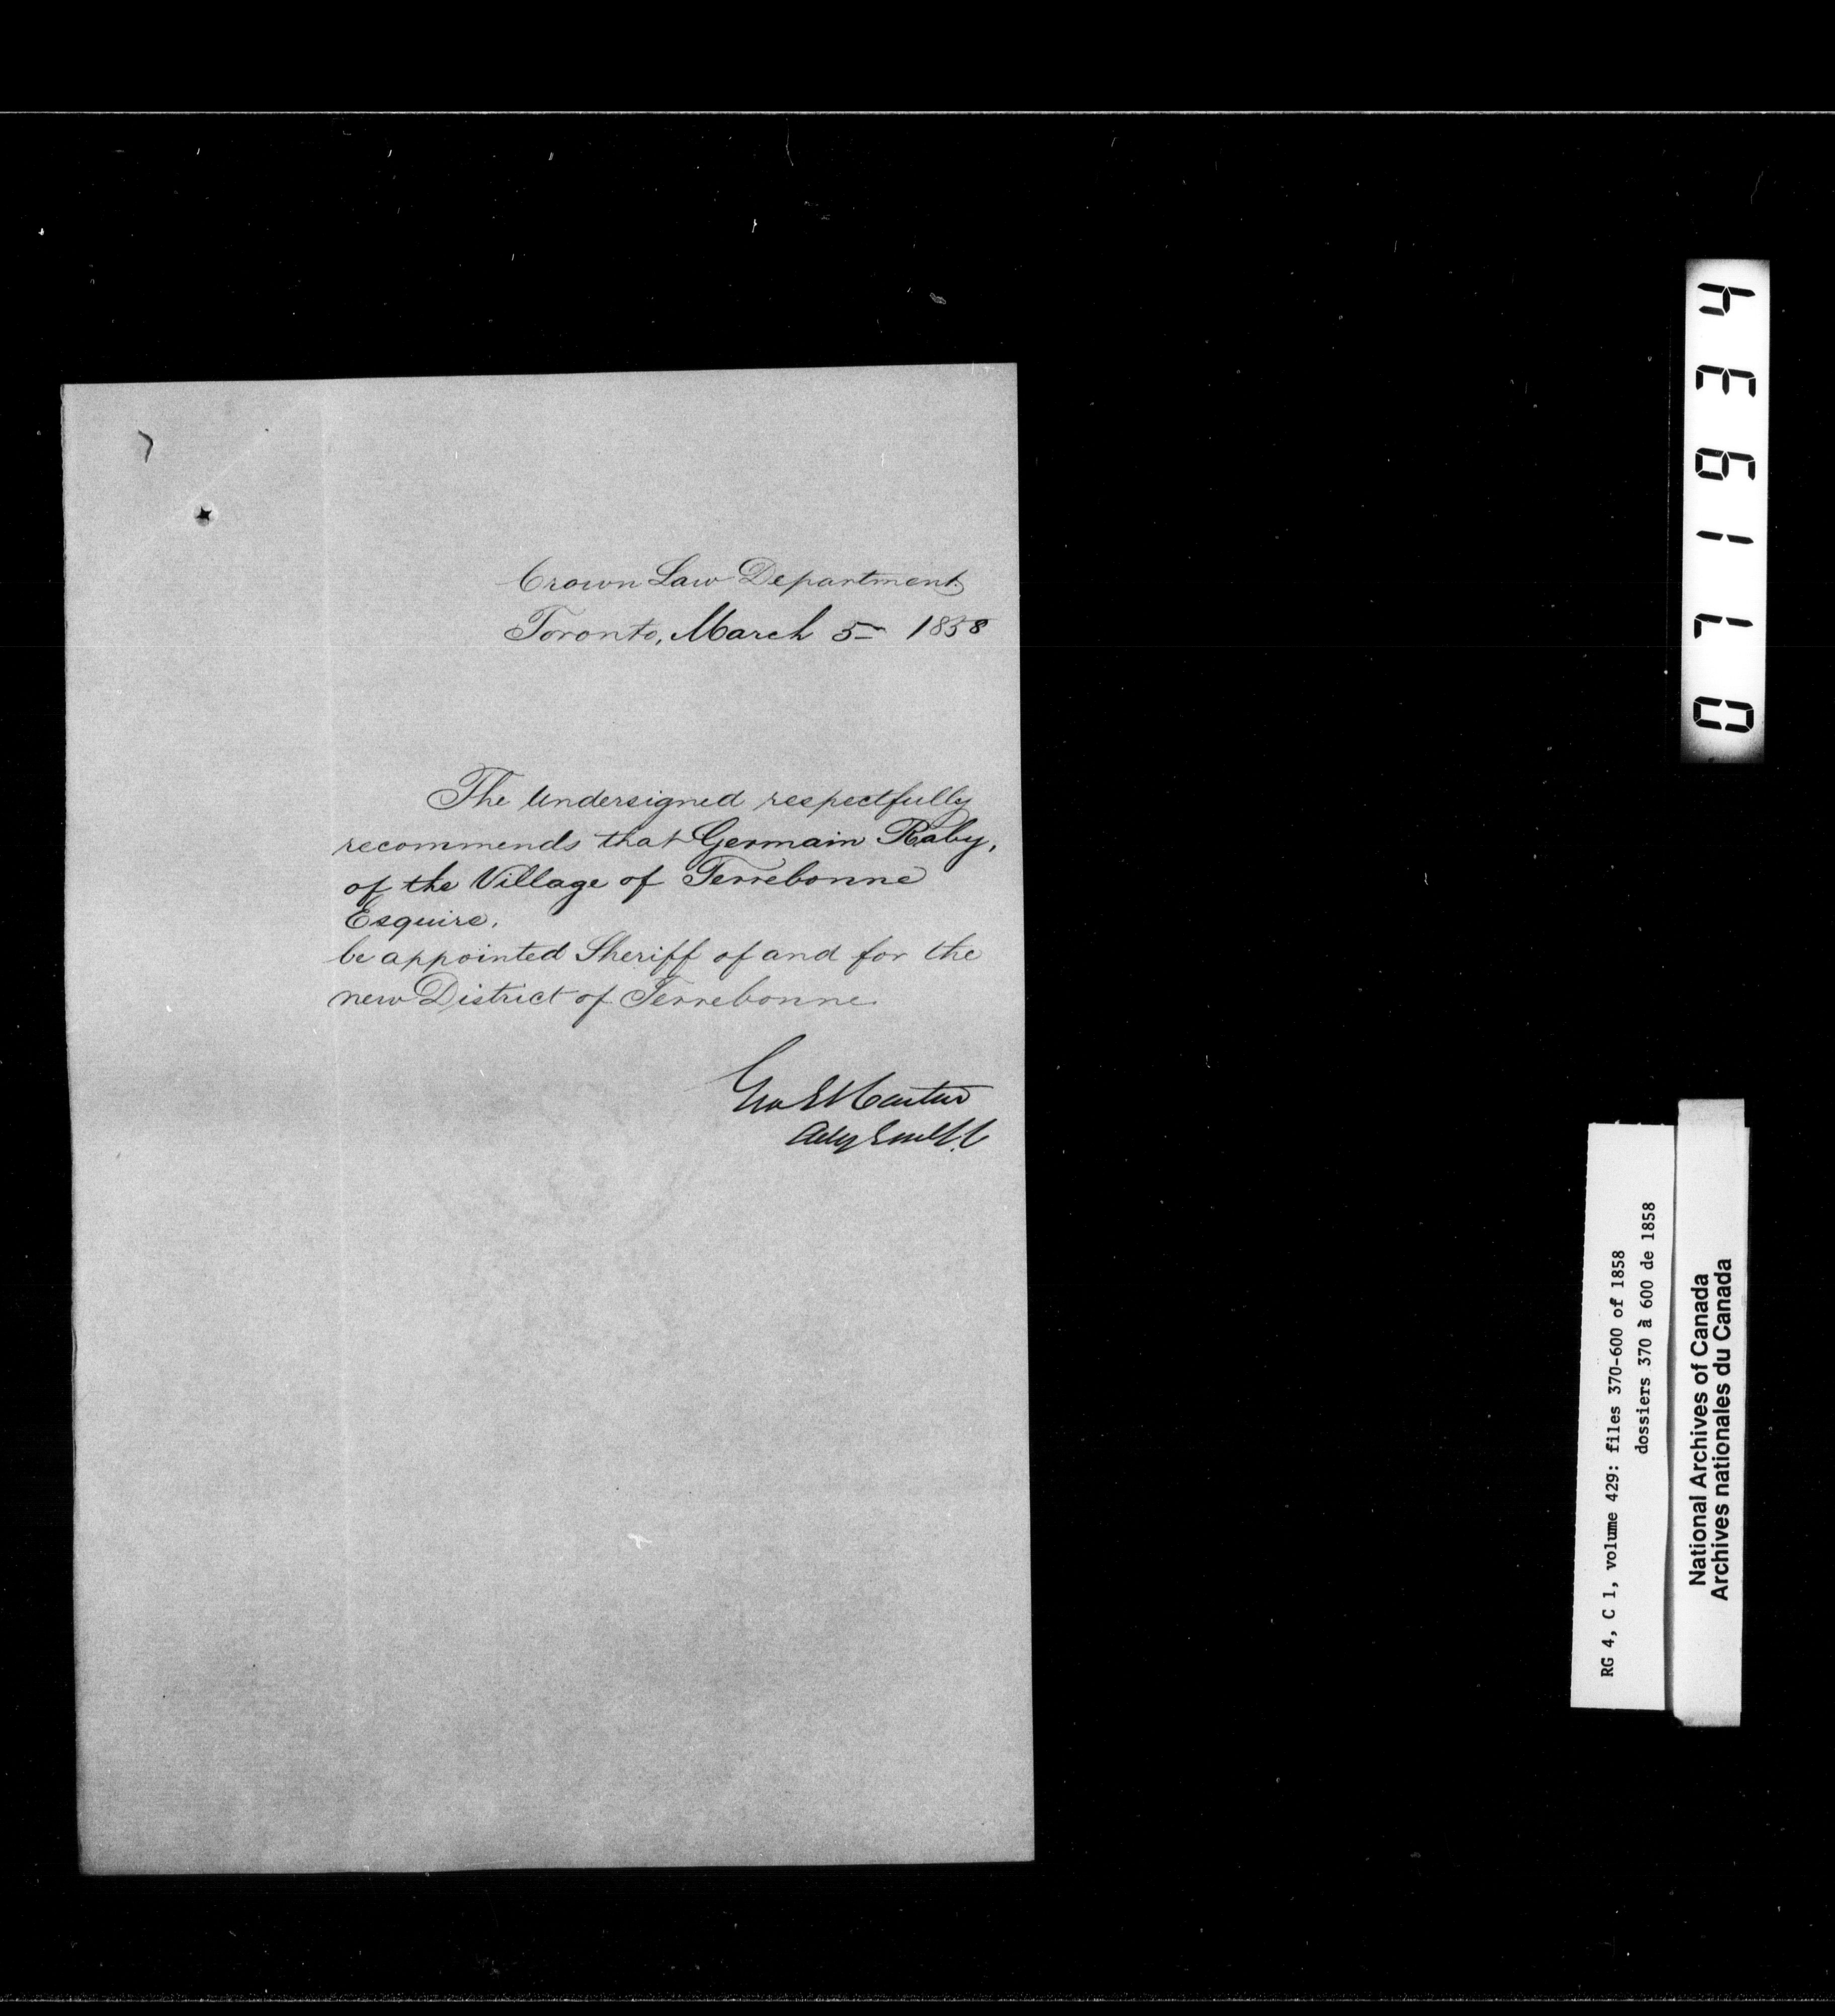 Crown Law Department
Toronto, March 5 1858
The Undersigned respectfully
recommends that Germain Raby,
of the Village of Terrebonne
Esquire.
be appointed Sheriff of and for the
new District of Terrebonne.
Geo E Cartier
Atty Genl L.C
071634
RG 4, C 1, volume 429: files 370-600 of 1858
dossiers 370 à 600 de 1858
National Archives of Canada
Archives nationales du Canada